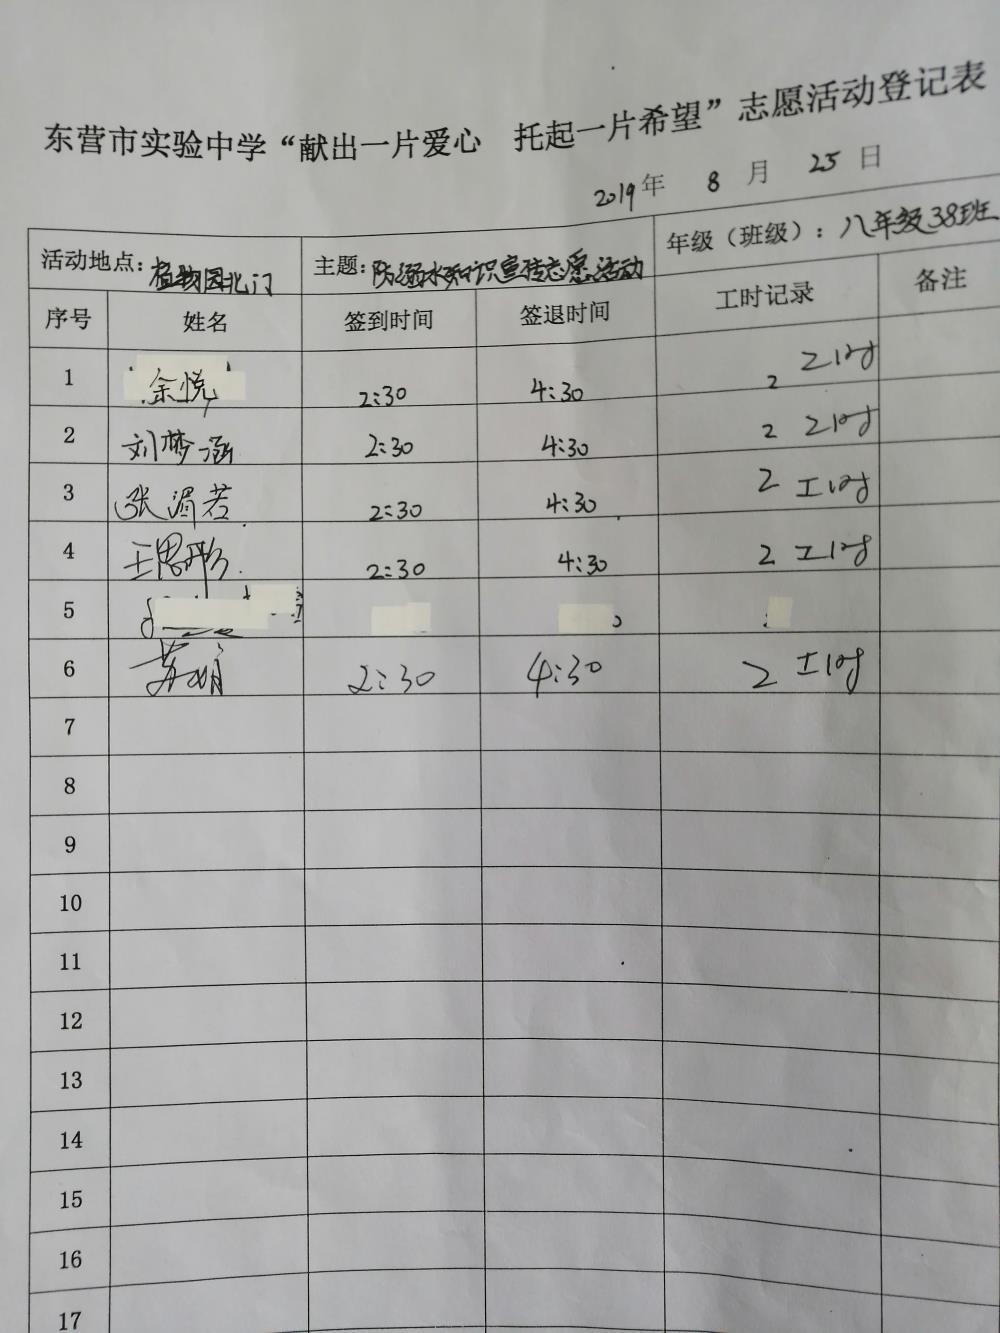 东营市实验中学“献出一片爱心 托起一片希望”志愿活动登记表
2019年 8 月 25 日
活动地点：植物园北门 主题：防溺水知识宣传志愿活动 年级（班级）：八年级38班
序号 姓名 签到时间 签退时间 工时记录 备注
1 余悦 2:30 4:30 2 工时
2 刘梦涵 2:30 4:30 2 工时
3 张湄若 2:30 4:30 2 工时
4 王思彤 2:30 4:30 2 工时
5
6 苏娟 2:30 4:30 2 工时
7
8
9
10
11
12
13
14
15
16
17